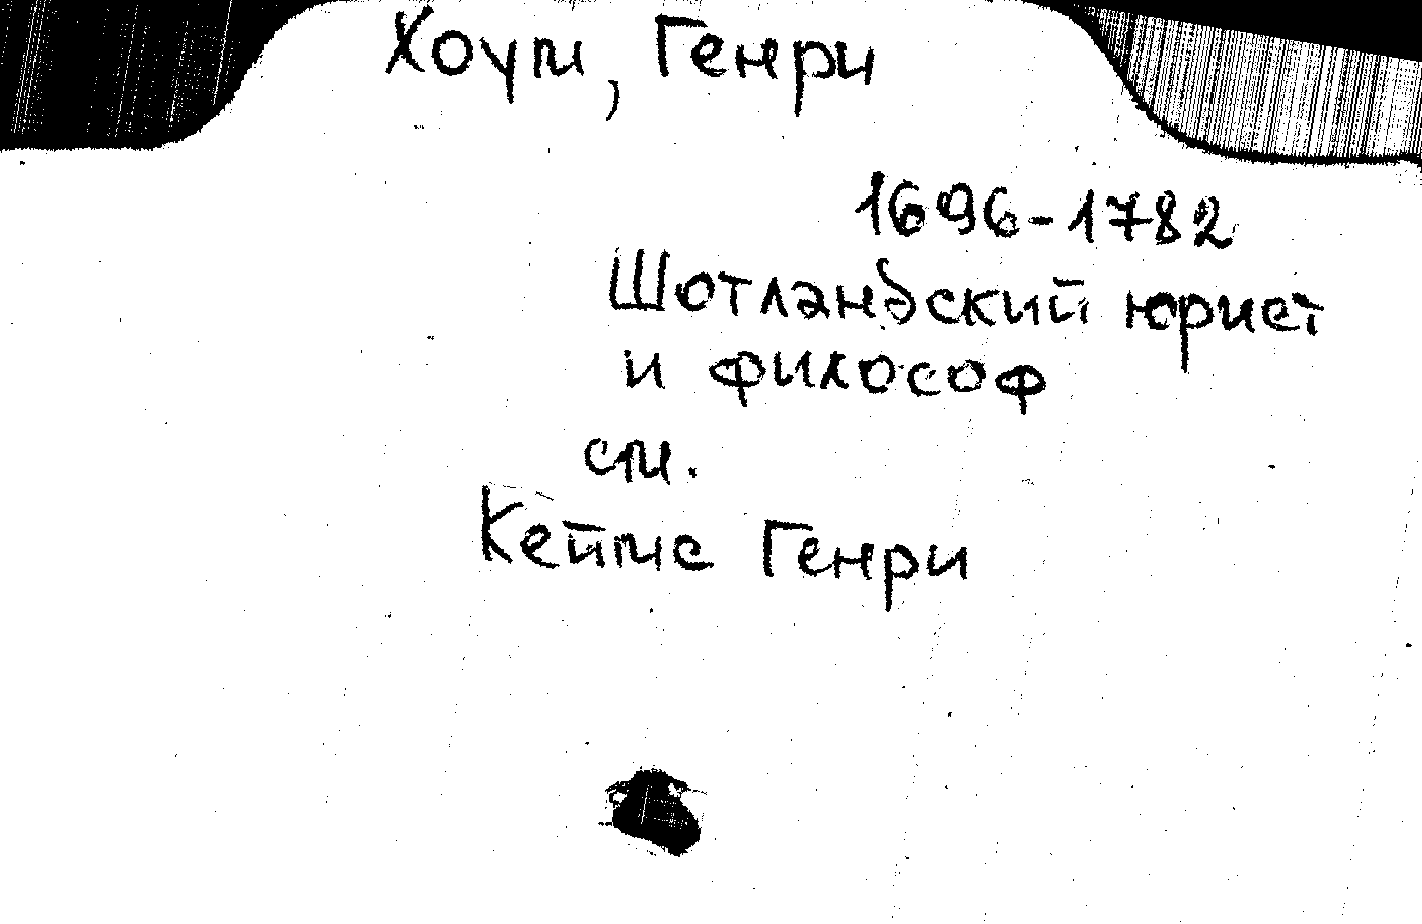 Хоум, Генри
1696-1782
Шотландский юрист
и философ
см.
Кеймс Генри